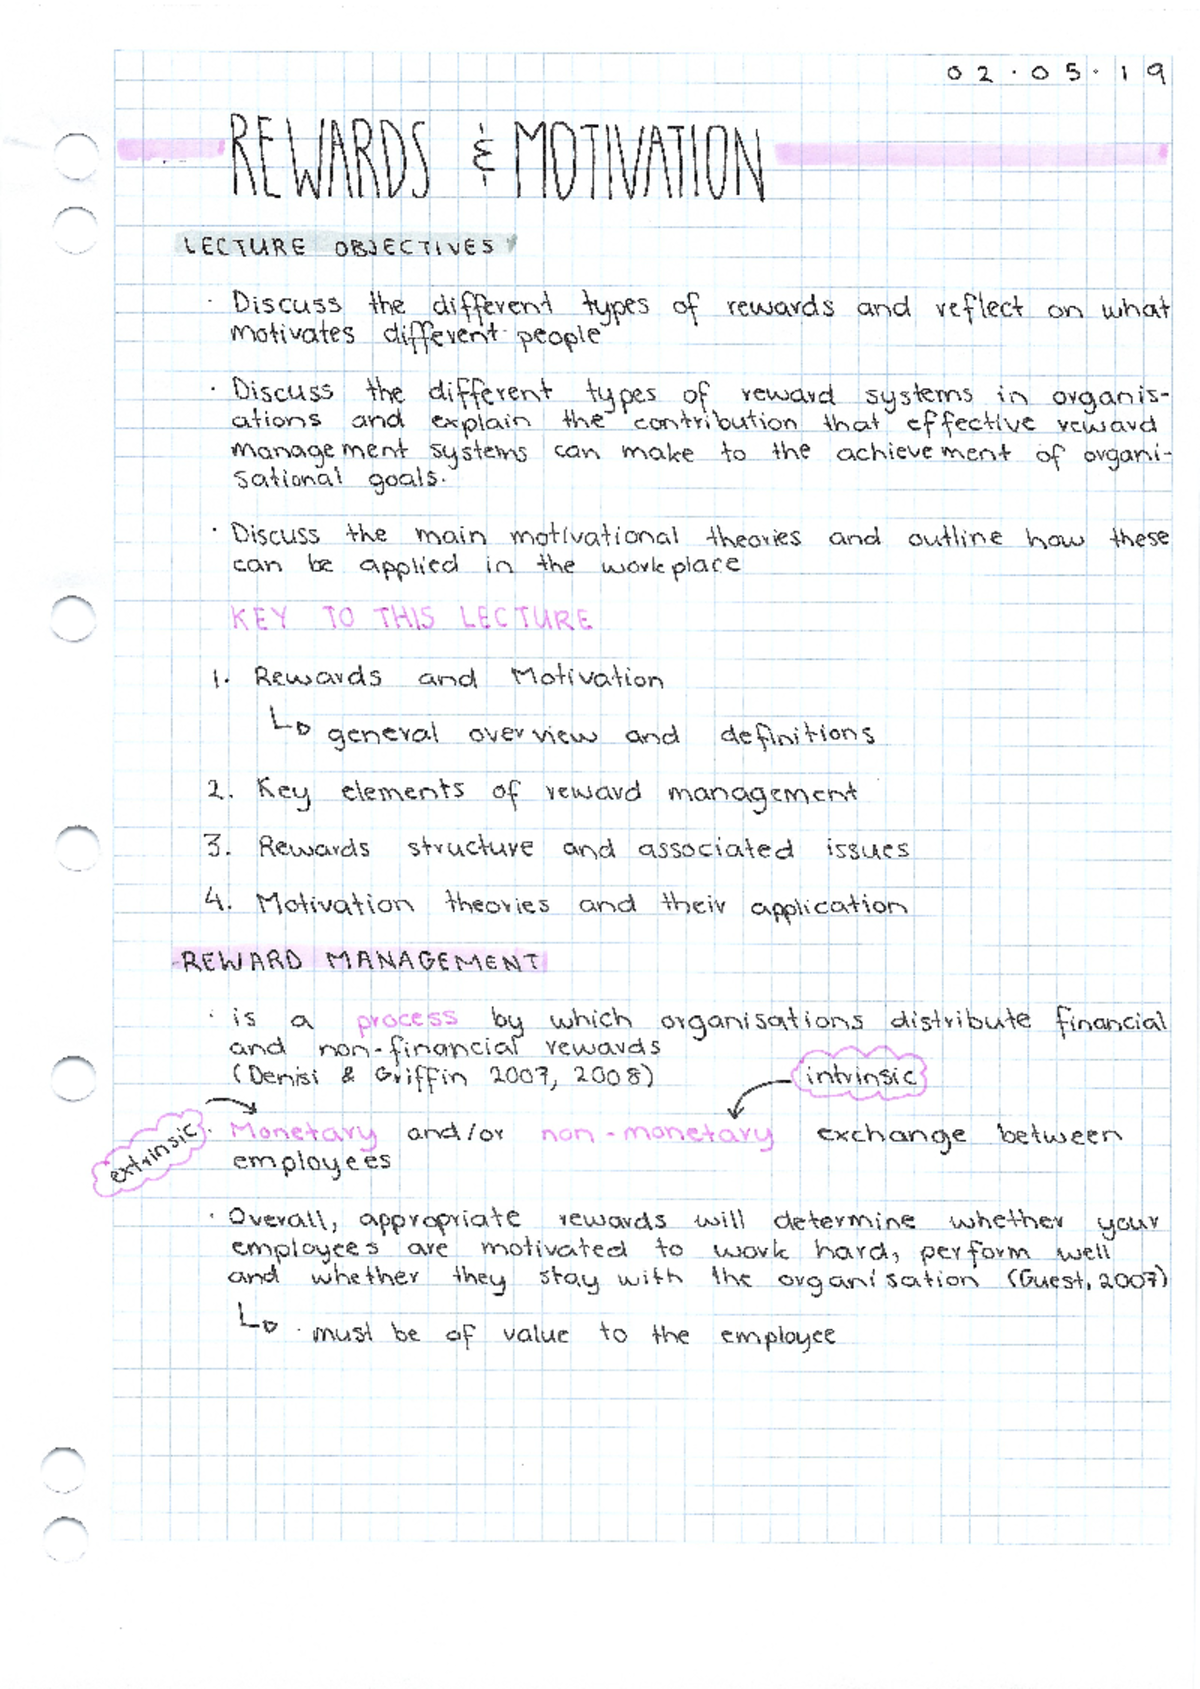 02.05.19
REWARDS & MOTIVATION
LECTURE OBJECTIVES
· Discuss the different types of rewards and reflect on what
motivates different people
· Discuss the different types of reward systems in organis-
ations and explain the contribution that effective reward
management systems can make to the achievement of organi-
sational goals.
· Discuss the main motivational theories and outline how these
can be applied in the workplace
KEY TO THIS LECTURE
1. Rewards and Motivation
↳ general overview and definitions
2. Key elements of reward management
3. Rewards structure and associated issues
4. Motivation theories and their application
REWARD MANAGEMENT
· is a process by which organisations distribute financial
and non-financial rewards
(Denisi & Griffin 2007, 2008)
intrinsic
extrinsic
· Monetary and/or non-monetary exchange between
employees
· Overall, appropriate rewards will determine whether your
employees are motivated to work hard, perform well
and whether they stay with the organisation (Guest, 2007)
↳ · must be of value to the employee